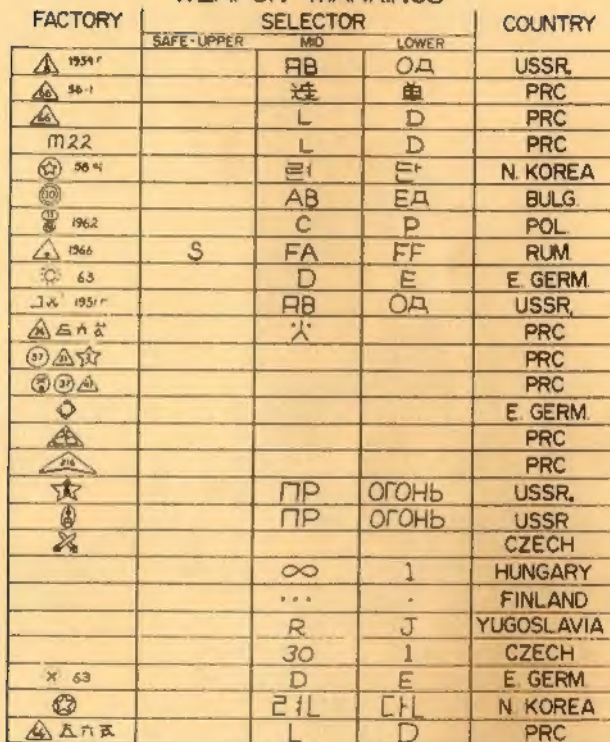 FACTORY SELECTOR COUNTRY
SAFE-UPPER MID LOWER
1954г ЯВ ОД USSR,
66 56-1 连 单 PRC
66 L D PRC
M22 L D PRC
58 련 단 N. KOREA
10 АВ ЕД BULG.
11 1962 C P POL.
1966 S FA FF RUM.
63 D E E. GERM.
1951г ЯВ ОД USSR,
PRC
37 31 PRC
37 PRC
E. GERM.
PRC
216 PRC
ПР ОГОНЬ USSR.
ПР ОГОНЬ USSR
CZECH
∞ 1 HUNGARY
... . FINLAND
R J YUGOSLAVIA
30 1 CZECH
63 D E E. GERM.
련 단 N. KOREA
66 五六式 L D PRC